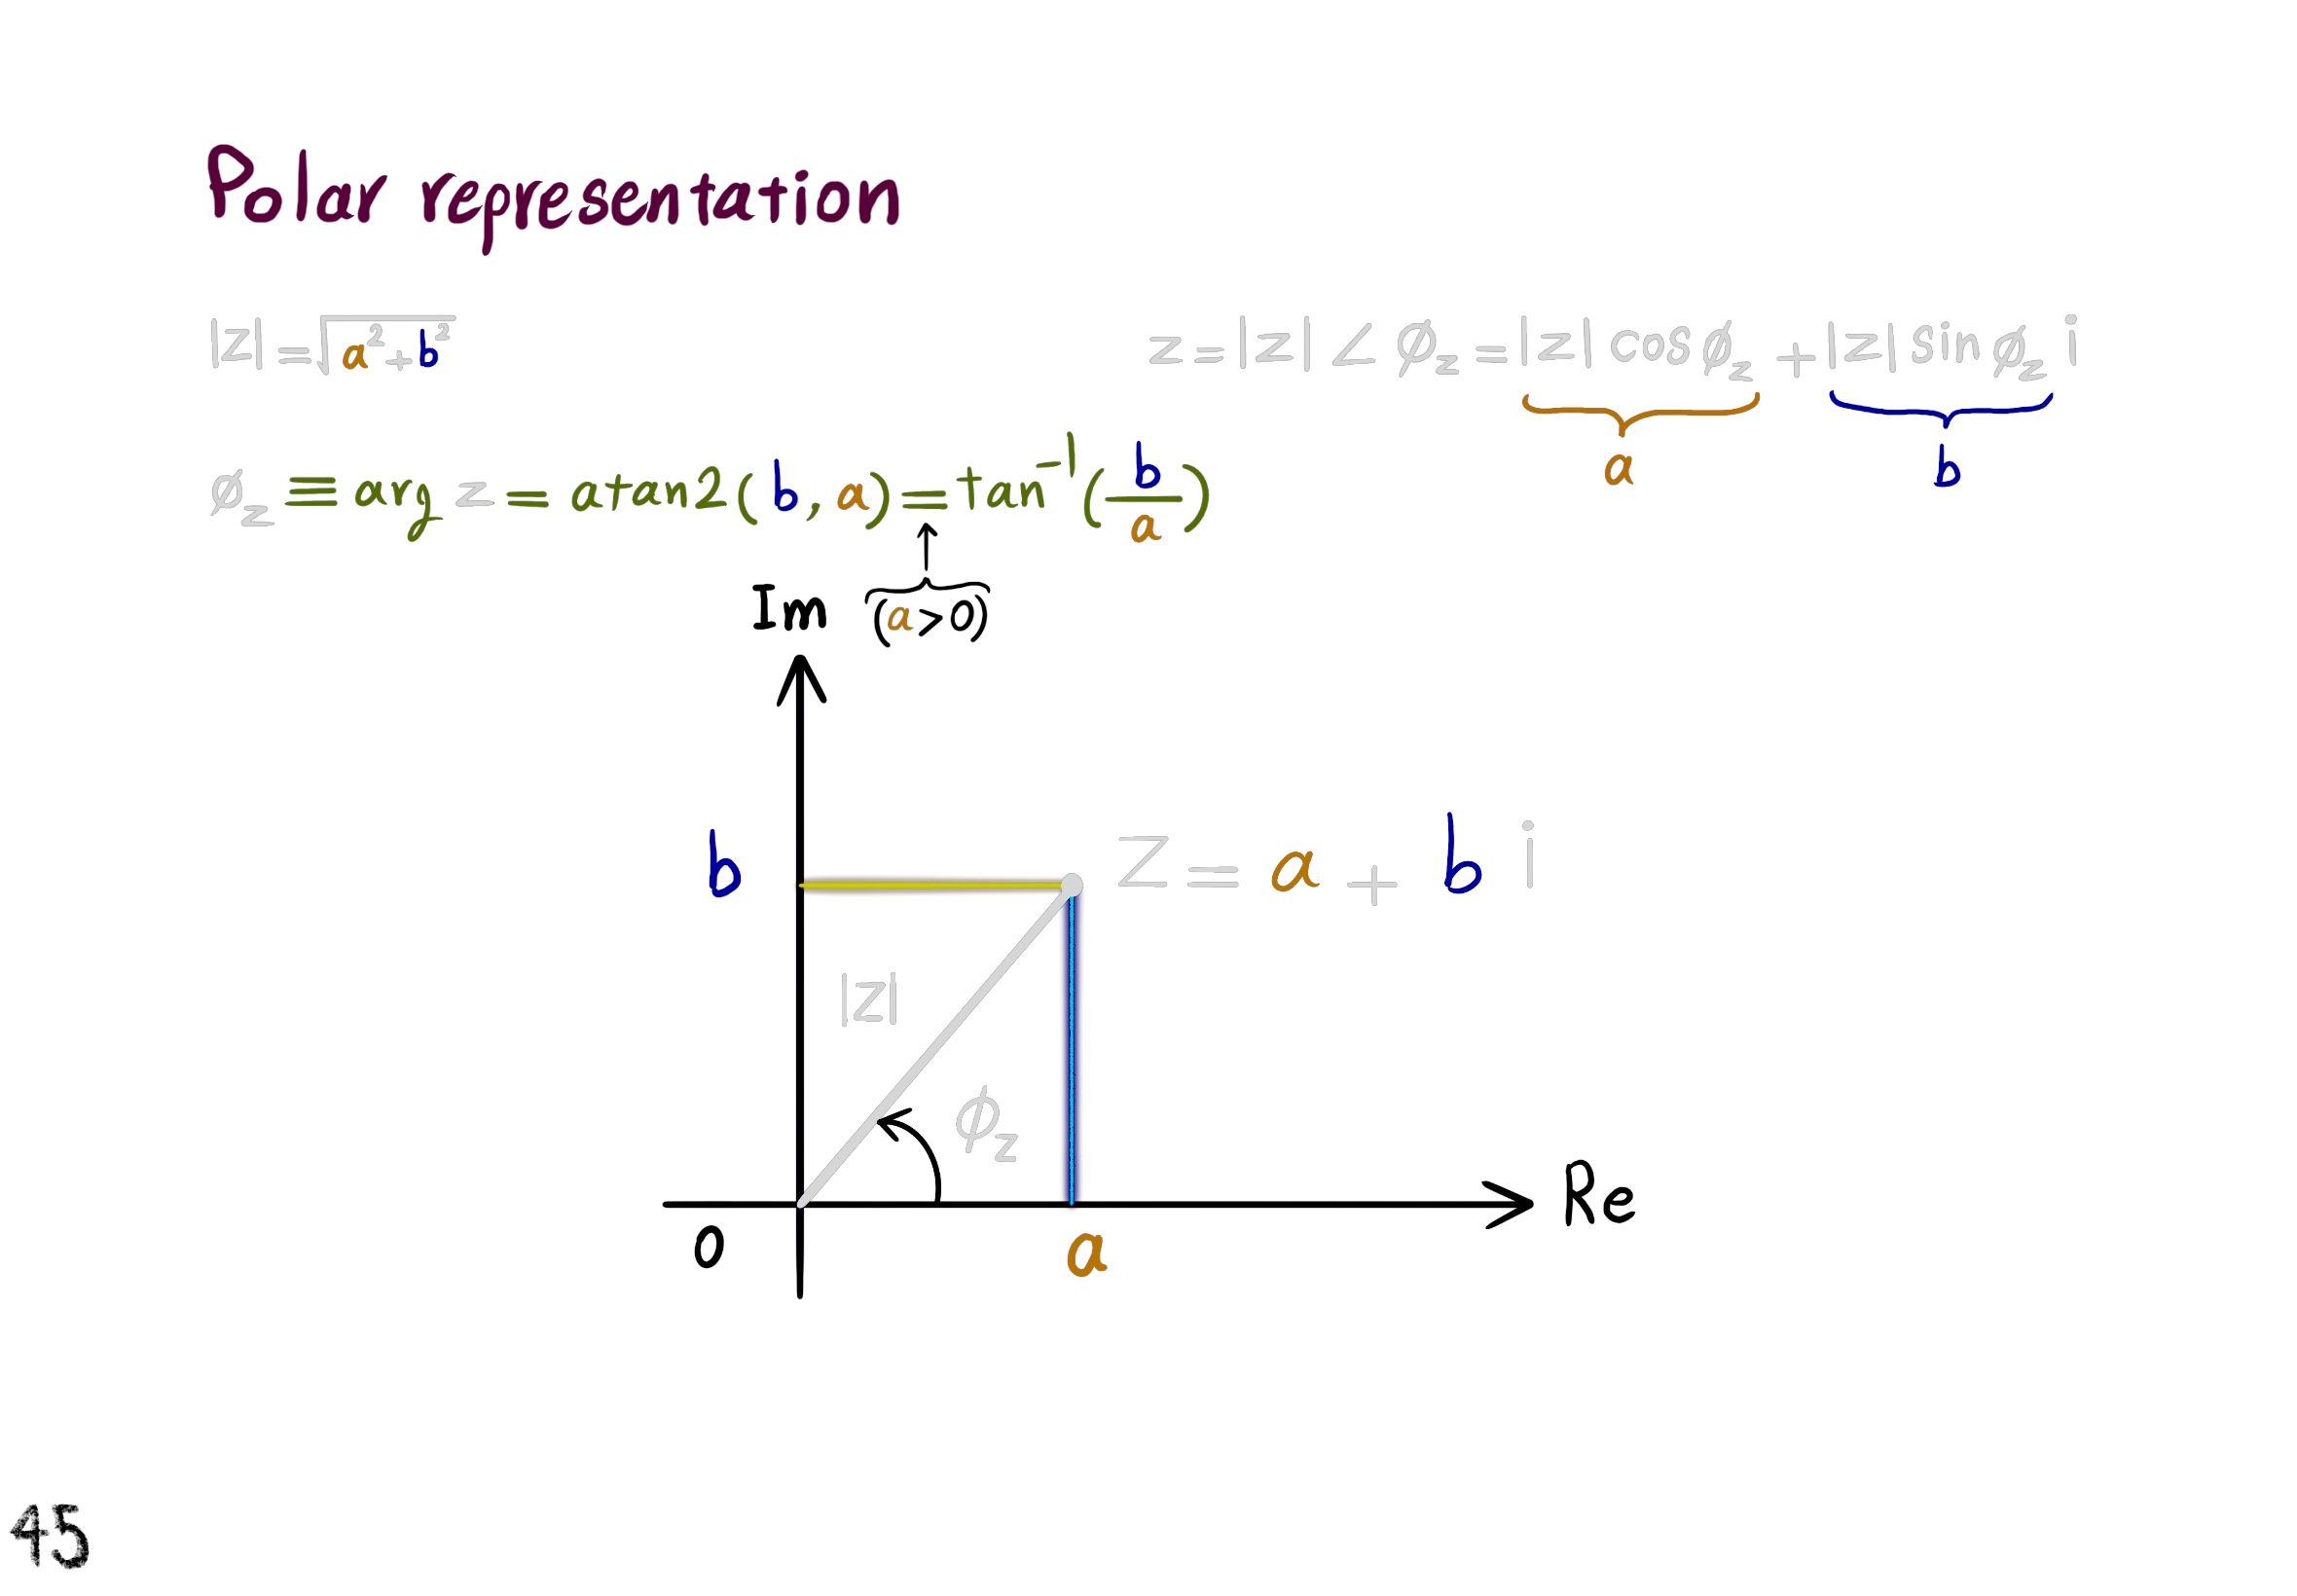 Polar representation
|z| = √a²+b²
z = |z| ∠ ϕz = |z| cosϕz + |z| sinϕz i
a b
ϕz ≡ arg z = atan2(b, a) = tan⁻¹(b/a)
Im (a>0)
b z = a + b i
|z|
ϕz
Re
0 a
45